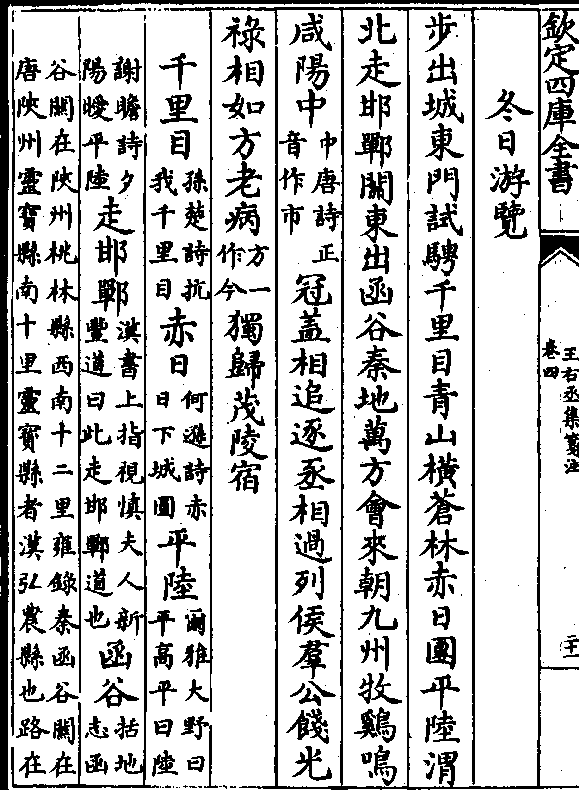 欽定四庫全書
王右丞集箋注
卷四
二十一
冬日游覽
步出城東門試騁千里目青山橫蒼林赤日團平陸渭
北走邯鄲關東出函谷秦地萬方會來朝九州牧鷄鳴
咸陽中中唐詩正音作市冠蓋相追逐丞相過列侯羣公餞光
祿相如方老病方一作今獨歸茂陵宿
千里目孫楚詩抗我千里目赤日何遜詩赤日下城圓平陸爾雅大野曰平高平曰陸
謝瞻詩夕陽曖平陸走邯鄲漢書上指視慎夫人新豐道曰此走邯鄲道也函谷括地志函
谷關在陝州桃林縣西南十二里雍錄秦函谷關在
唐陝州靈寶縣南十里靈寶縣者漢弘農縣也路在